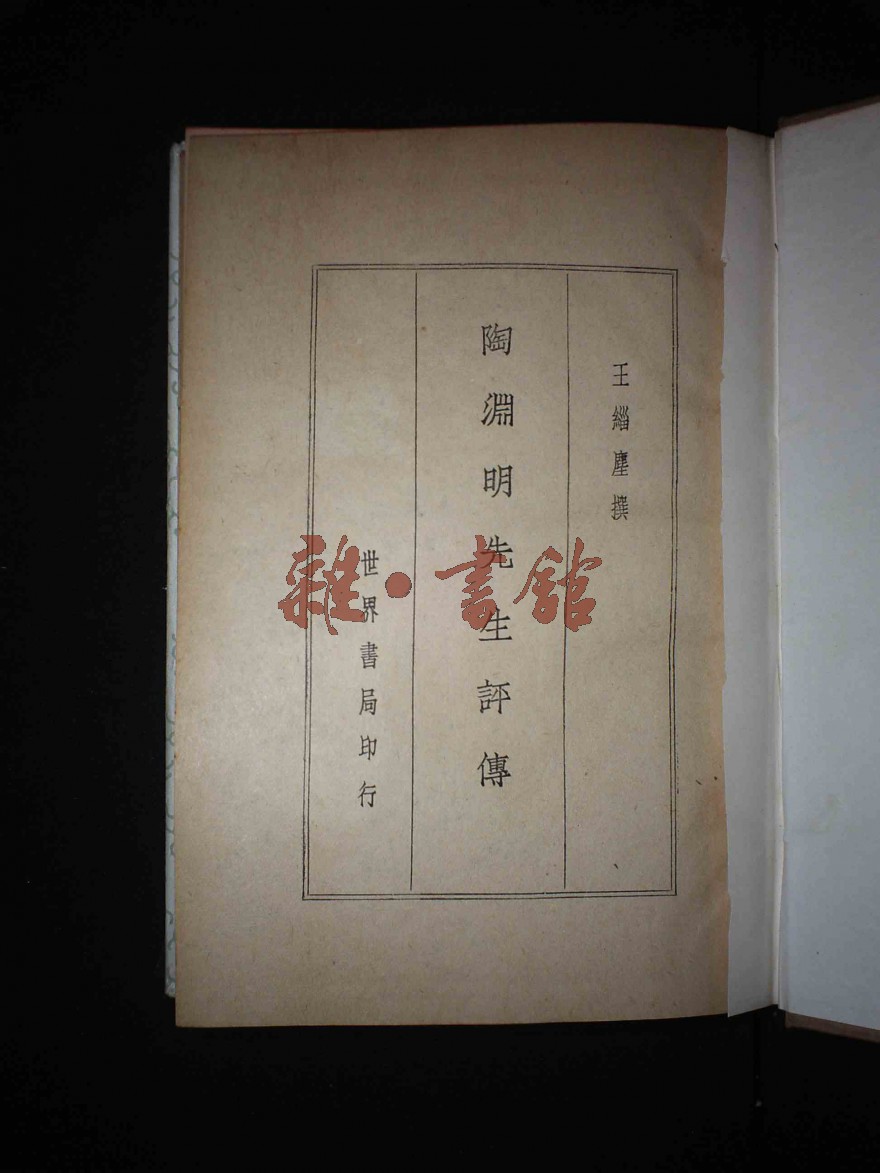 王緇塵撰
陶淵明先生評傳
世界書局印行
雜·書館